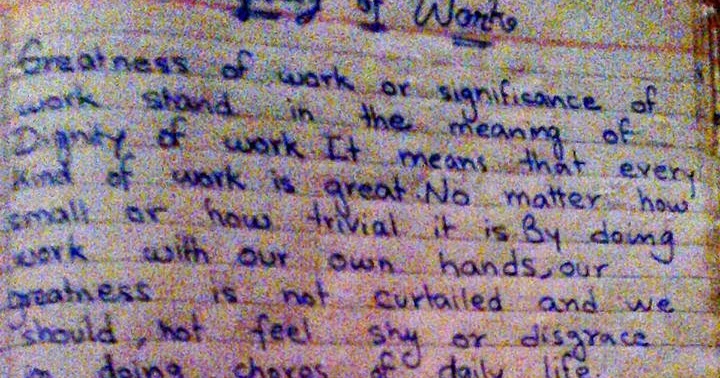 of Work
Greatness of work or significance of
work stand in the meaning of
Dignity of work It means that every
kind of work is great. No matter how
small or how trivial it is. By doing
work with our own hands, our
greatness is not curtailed and we
should, not feel shy or disgrace
in doing chores of daily life.